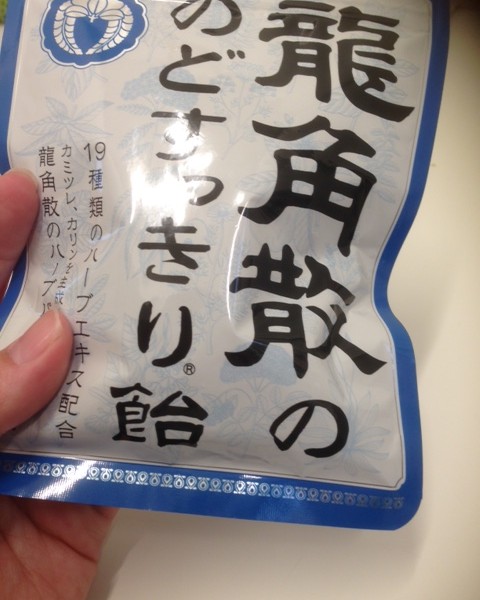 龍角散の
のどすっきり®飴
19種類のハーブエキス配合
カミツレ、カリンを主成
龍角散のハーブ